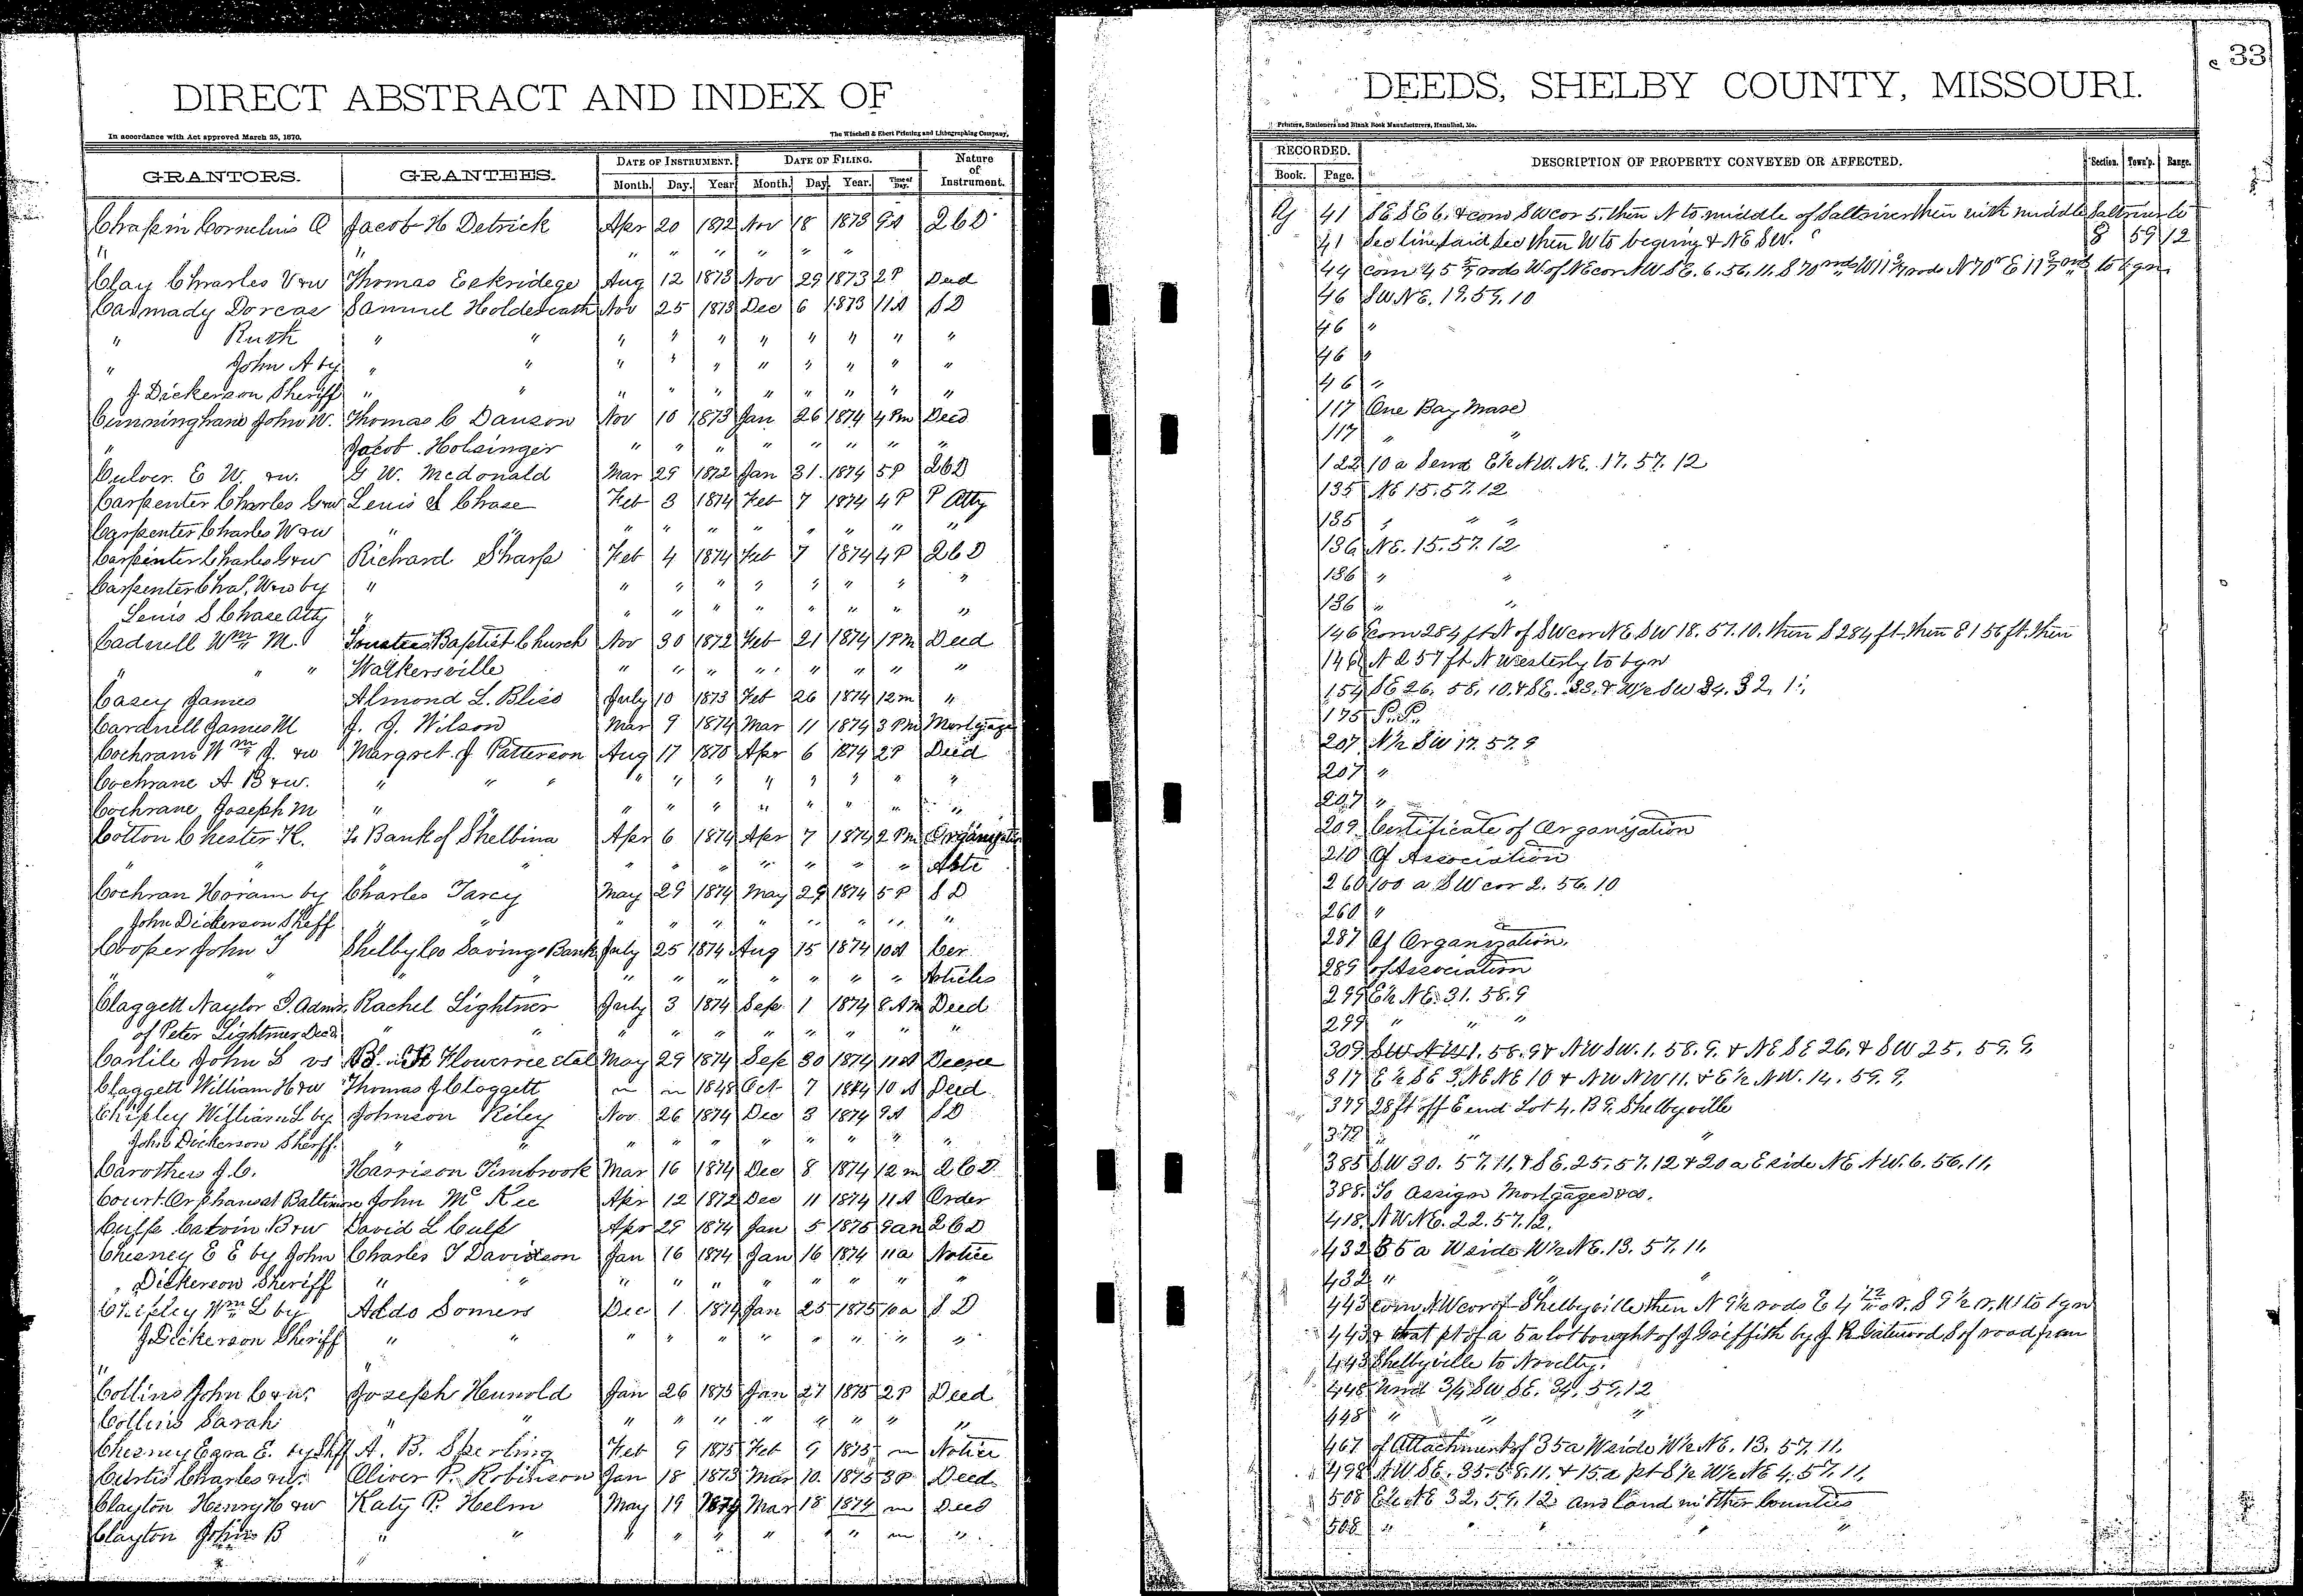 33
DIRECT ABSTRACT AND INDEX OF DEEDS, SHELBY COUNTY, MISSOURI.
In accordance with Act approved March 25, 1870. The Winchell & Ebert Printing and Lithographing Company, Printers, Stationers and Blank Book Manufacturers, Hannibal, Mo.
GRANTORS. GRANTEES. DATE OF INSTRUMENT. DATE OF FILING. Nature of Instrument. RECORDED. DESCRIPTION OF PROPERTY CONVEYED OR AFFECTED. Section. Town'p. Range.
Month. Day. Year Month. Day. Year. Time of Day. Book. Page.
Cornelius Jacob H Detrick Apr 20 1872 Nov 18 1873 9A 2 6 D 41 SE SE 6. & com SW cor 5. then N to middle of then with middle
" " " " " " " 41 Sec line said Sec then W to begining & NE SW. 8 59 12
Clay Charles V & w Thomas Eckridege Aug 12 1873 Nov 29 1873 2 P Deed 44 com 45 rods W of NE cor NW SE. 6. 56. 11. to bgn
Carmady Dorcas Samuel Nov 25 1873 Dec 6 1873 11 A S D 46 SW NE. 19. 59. 10
" Ruth " " " " " " " " " " 46 "
" John A by " " " " " " " " " " 46 "
J. Dickerson Sheriff " " " " " " " " " " 46 "
Cunningham John W. Thomas C Danson Nov 10 1873 Jan 26 1874 4 Pm Deed 117 One Bay Mare
" Jacob Holsinger " " " " " " " " 117 " "
Culver E W. & w. G W. Mcdonald Mar 29 1872 Jan 31. 1874 5 P 2 6 D 122 10 a S end E½ NW. NE. 17. 57. 12
Carpenter Charles G & w Lewis S Chase Feb 3 1874 Feb 7 1874 4 P P Atty 135 NE 15. 57. 12
Carpenter Charles W & w " " " " " " " " " " 135 " " "
Carpenter Charles G & w Richard Sharp Feb 4 1874 Feb 7 1874 4 P 2 6 D 136 NE. 15. 57. 12
Carpenter Chas. W & w by " " " " " " " " " 136 " "
Lewis S Chase Atty " " " " " " " " " 136 " "
Cadwell Wm M. Trustees Baptist Church Nov 30 1872 Feb 21 1874 1 Pm Deed 146 com 284 ft N of SW cor NE SW 18. 57. 10. then S 284 ft then E 156 ft. then
" " " Walkersville " " " " " " " " 146 N 257 ft N Westerly to bgn
Casey James Almond L. Bliss July 10 1873 Feb 26 1874 12 m " 154 SE 26. 58. 10. & SE. 33. & W½ SW 34.
Cardwell James M J. J. Wilson Mar 9 1874 Mar 11 1874 3 Pm Mortgage 175 P. P.
Cochran Wm J. & w Margret J Patterson Aug 17 1870 Apr 6 1874 2 P Deed 207 N½ SW 17. 57. 9
Cochrane A B & w. " " " " " " " " " " 207 "
Cochrane Joseph M " " " " " " " " " " 207 "
Cotton Chester K. To Bank of Shelbina Apr 6 1874 Apr 7 1874 2 Pm Organization 209 Certificate of Organization
" " " " " " " " " " Arti 210 Of Association
Cochran Hiram by Charles Tarcy May 29 1874 May 29 1874 5 P S D 260 100 a SW cor 2. 56. 10
John Dickerson Sheff " " " " " " " " " " 260 "
Cooper John T Shelby Co Savings Bank July 25 1874 Aug 15 1874 10 A Cer 287 Of Organization.
" " " " " " " " " " Articles 289 of Association
Claggett Naylor T. Admr. Rachel Lightner July 3 1874 Sep 1 1874 8 Am Deed 299 E½ NE. 31. 58. 9
of Peter Lightner Decd " " " " " " " " " 299 " " "
Carlile John S vs Flowerree et al May 29 1874 Sep 30 1874 11 A Decree 309 SW NW 1. 58. 9 & NW SW. 1. 58. 9. & NE SE 26. & SW 25. 59. 9.
Claggett William H & w Thomas J Claggett " " 1848 Oct 7 1874 10 A Deed 317 E½ SE 3. NE NE 10 & NW NW 11. & E½ NW. 14. 59. 9.
Chipley William L by Johnson Riley Nov 26 1874 Dec 3 1874 9 A S D 379 28 ft off E end Lot 4. B 9. Shelbyville
John Dickerson Sheriff. " " " " " " " " " 379 " " "
Carothers J. C. Harrison Timbrook Mar 16 1874 Dec 8 1874 12 m 2 6 D 385 SW 30. 57. 11. & SE. 25. 57. 12 & 20 a E side NE NW. 6. 56. 11.
Court Orphans at Baltimore John Mc Kee Apr 12 1872 Dec 11 1874 11 A Order 388. To Assign Mortgages &c.
Culp Catvin B & w David L Culp Apr 29 1874 Jan 5 1875 9 am 2 6 D 418. NW NE. 22. 57. 12.
Chesney E E by John Charles T Davidson Jan 16 1874 Jan 16 1874 11 a Notice 432 35 a W side W½ NE. 13. 57. 11.
" Dickerson Sheriff " " " " " " " " " " 432 " " "
Chipley Wm L by Aldo Somers Dec 1 1874 Jan 25 1875 10 a S D 443 com NW cor of Shelbyville then N 9½ rods to bgn
J Dickerson Sheriff " " " " " " " " " " 443 & that pt of a 5 a lot bought of J Griffith by J. R Gatewood S of road from
" " 443 Shelbyville to Novelty.
Collins John C & w. Joseph Hunold Jan 26 1875 Jan 27 1875 2 P Deed 448 Und 3/4 SW SE. 34. 59. 12
Collins Sarah " " " " " " " " " " 448 " " "
Chesney Ezra E. by Shff A. B. Sperling Feb 9 1875 Feb 9 1875 " Notice 467 of Attachment of 35 a W side W½ NE. 13. 57. 11.
Curtis Charles & w. Oliver P. Robinson Jan 18 1873 Mar 10. 1875 3 P Deed 498 NW SE. 35. 58. 11. & 15 a pt S½ W½ NE 4. 57. 11.
Clayton Henry H & w Katy P. Helm May 19 1874 Mar 18 1874 " Deed 508 E½ NE 32. 59. 12 and Land in Other Counties
Clayton John B " " " " " " " " " " 508 " " " "